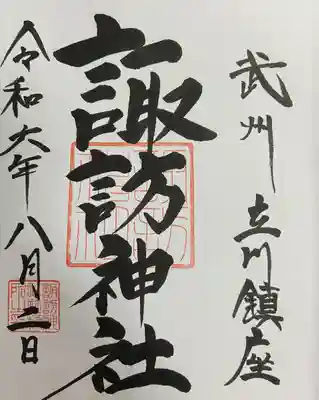 武州 立川鎮座
諏訪神社
令和六年八月二日